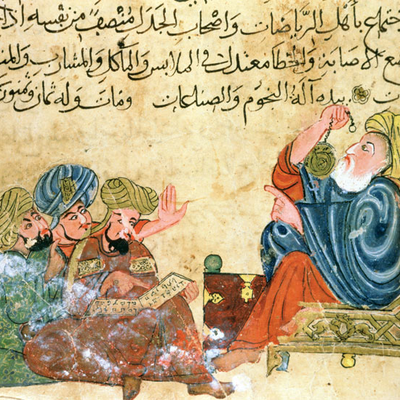 جتماع باهل الرياضات واصحاب الجدل منصف من نفسه اذا
ضع الاصابة والخطا معتدل في الملابس والمآكل والمشارب والمنا
ت بيده آلة النجوم والصناعات ومات وله ثمان وستون